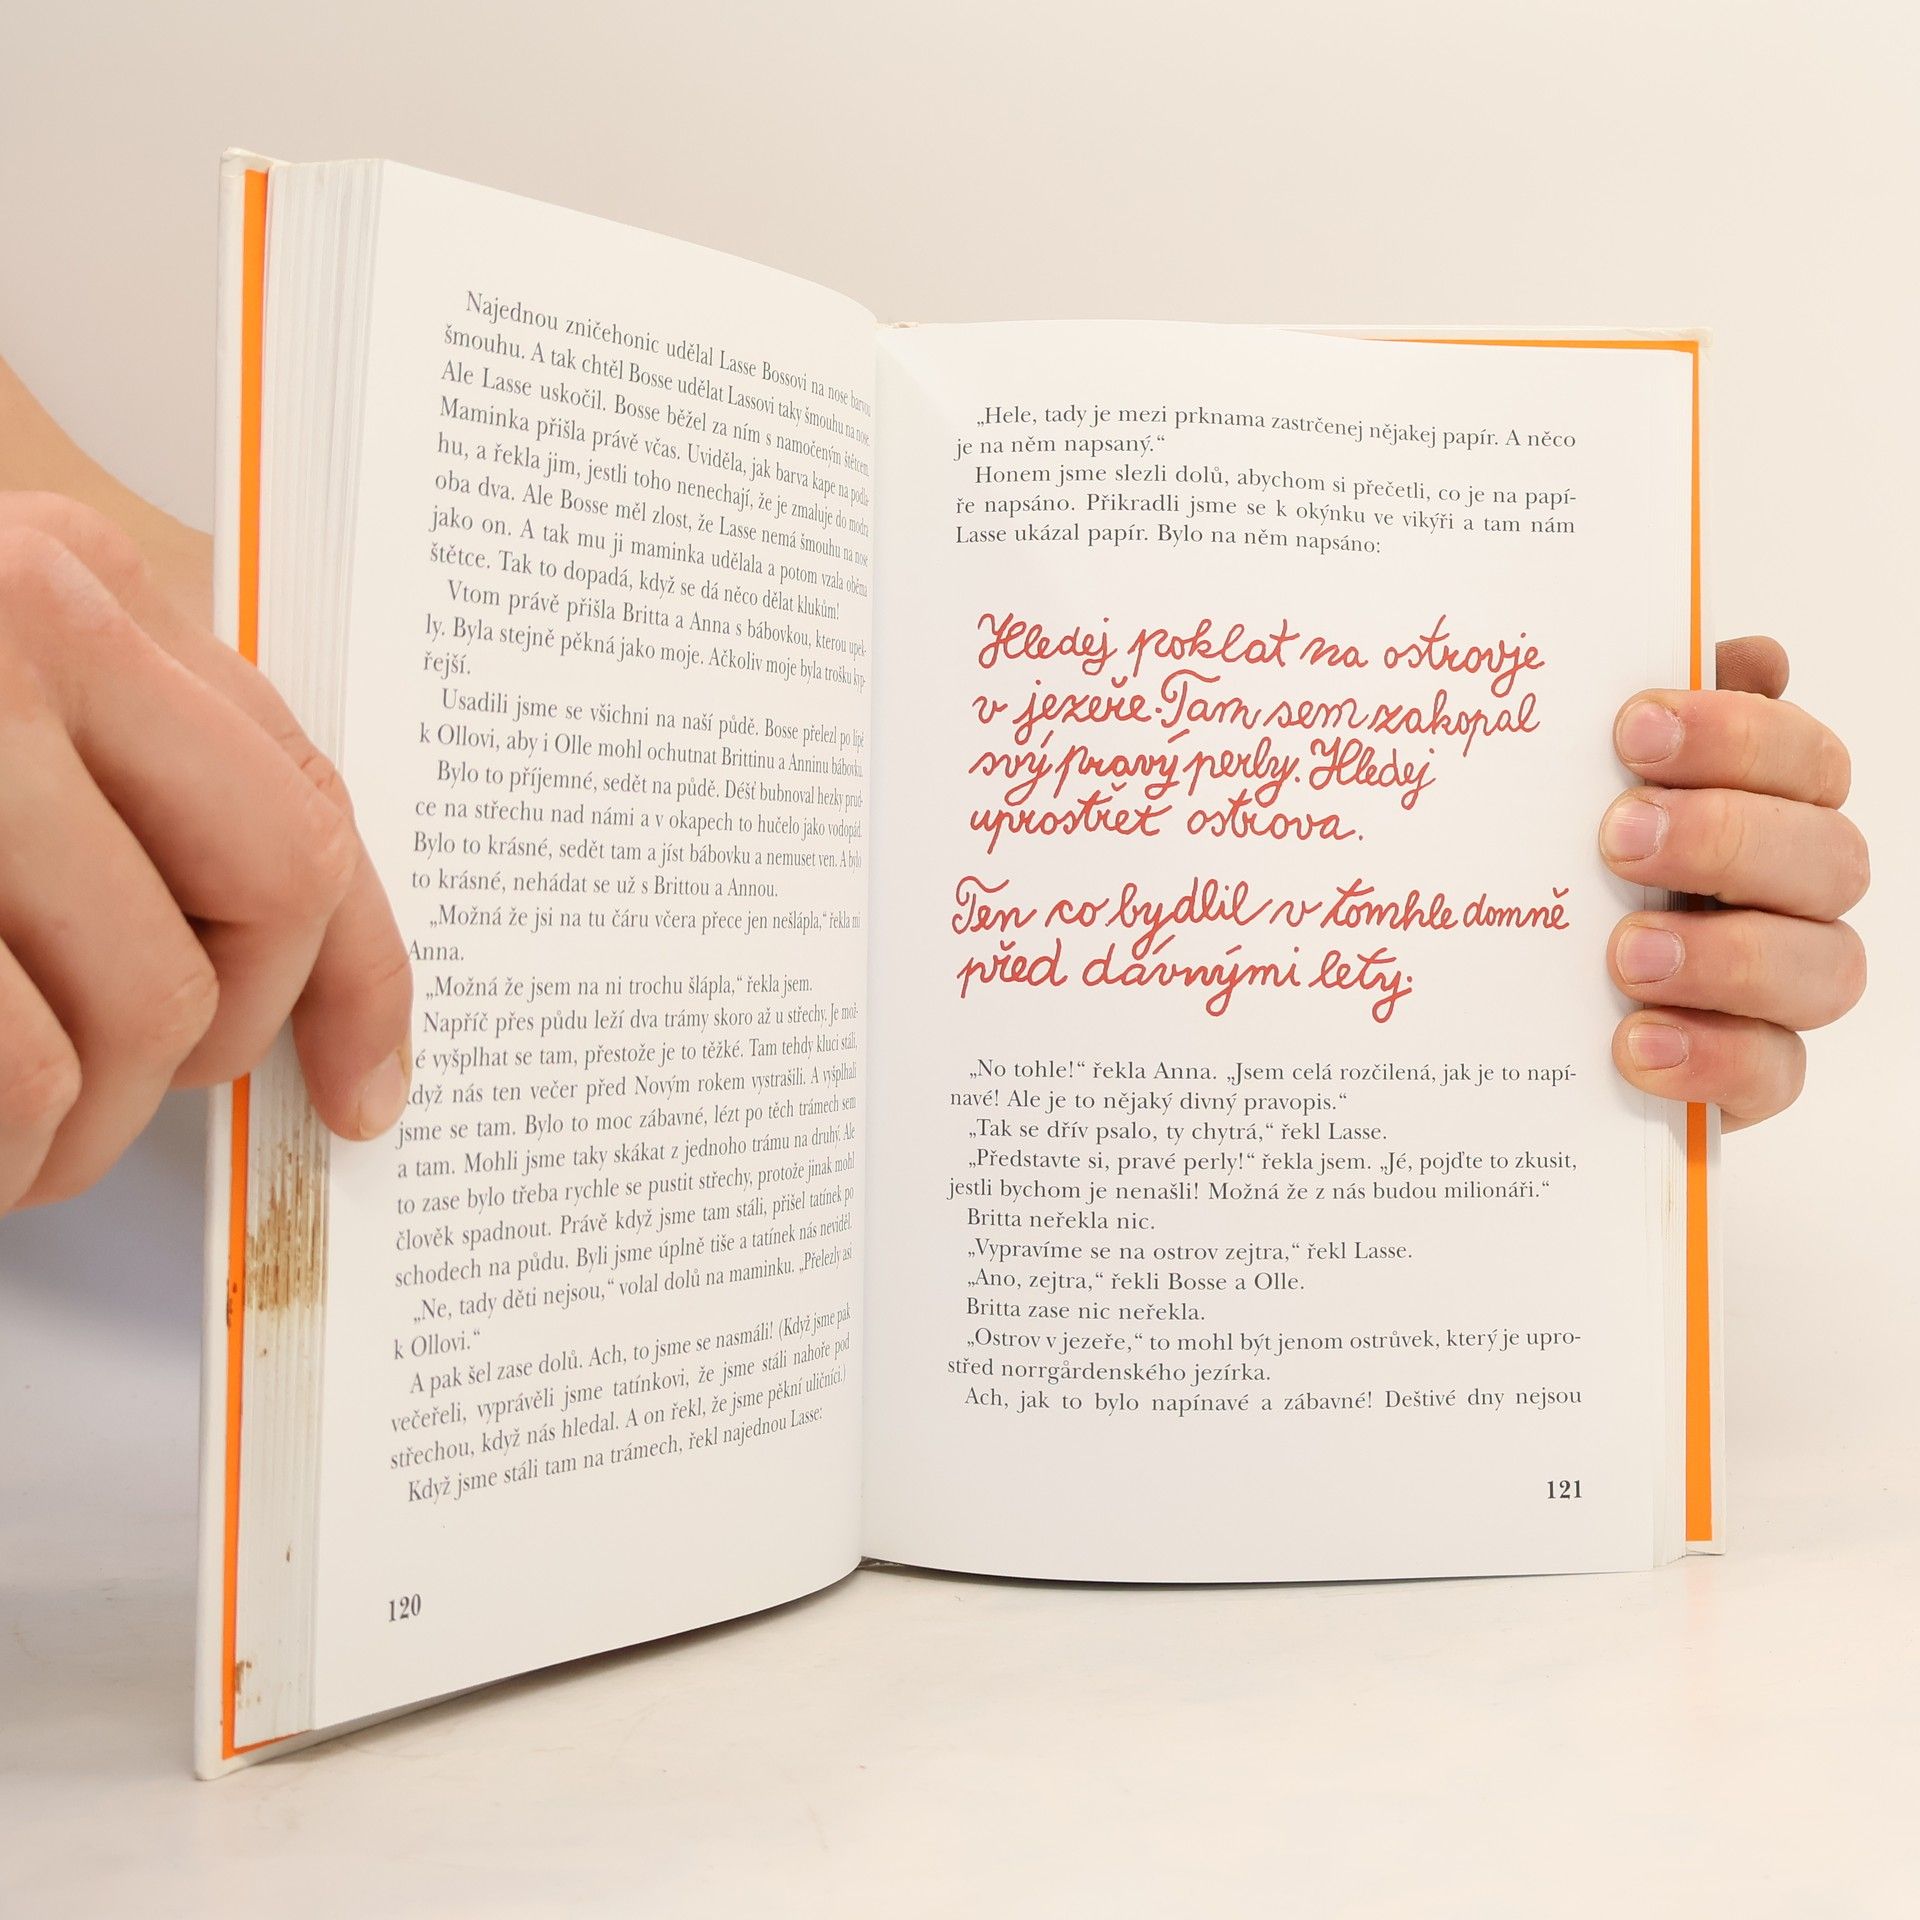 Najednou zničehonic udělal Lasse Bossovi na nose barvou
šmouhu. A tak chtěl Bosse udělat Lassovi taky šmouhu na nose.
Ale Lasse uskočil. Bosse běžel za ním s namočeným štětcem.
Maminka přišla právě včas. Uviděla, jak barva kape na podla-
hu, a řekla jim, jestli toho nenechají, že je zmaluje do modra
oba dva. Ale Bosse měl zlost, že Lasse nemá šmouhu na nose
jako on. A tak mu ji maminka udělala a potom vzala oběma
štětce. Tak to dopadá, když se dá něco dělat klukům!
Vtom právě přišla Britta a Anna s bábovkou, kterou upek-
ly. Byla stejně pěkná jako moje. Ačkoliv moje byla trošku kyp-
řejší.
Usadili jsme se všichni na naší půdě. Bosse přelezl po lípě
k Ollovi, aby i Olle mohl ochutnat Brittinu a Anninu bábovku.
Bylo to příjemné, sedět na půdě. Déšť bubnoval hezky prud-
ce na střechu nad námi a v okapech to hučelo jako vodopád.
Bylo to krásné, sedět tam a jíst bábovku a nemuset ven. A bylo
to krásné, nehádat se už s Brittou a Annou.
„Možná že jsi na tu čáru včera přece jen nešlápla,“ řekla mi
Anna.
„Možná že jsem na ni trochu šlápla,“ řekla jsem.
Napříč přes půdu leží dva trámy skoro až u střechy. Je mož-
é vyšplhat se tam, přestože je to těžké. Tam tehdy kluci stáli,
když nás ten večer před Novým rokem vystrašili. A vyšplhali
jsme se tam. Bylo to moc zábavné, lézt po těch trámech sem
a tam. Mohli jsme taky skákat z jednoho trámu na druhý. Ale
to zase bylo třeba rychle se pustit střechy, protože jinak mohl
člověk spadnout. Právě když jsme tam stáli, přišel tatínek po
schodech na půdu. Byli jsme úplně tiše a tatínek nás neviděl.
„Ne, tady děti nejsou,“ volal dolů na maminku. „Přelezly asi
k Ollovi.“
A pak šel zase dolů. Ach, to jsme se nasmáli! (Když jsme pak
večeřeli, vyprávěli jsme tatínkovi, že jsme stáli nahoře pod
střechou, když nás hledal. A on řekl, že jsme pěkní uličníci.)
Když jsme stáli tam na trámech, řekl najednou Lasse:
120
„Hele, tady je mezi prknama zastrčenej nějakej papír. A něco
je na něm napsaný.“
Honem jsme slezli dolů, abychom si přečetli, co je na papí-
ře napsáno. Přikradli jsme se k okýnku ve vikýři a tam nám
Lasse ukázal papír. Bylo na něm napsáno:
Hledej poklat na ostrovje
v jezeře. Tam sem zakopal
svý pravý perly. Hledej
uprostřet ostrova.
Ten co bydlil v tomhle domně
před dávnými lety.
„No tohle!“ řekla Anna. „Jsem celá rozčilená, jak je to napí-
navé! Ale je to nějaký divný pravopis.“
„Tak se dřív psalo, ty chytrá,“ řekl Lasse.
„Představte si, pravé perly!“ řekla jsem. „Jé, pojďte to zkusit,
jestli bychom je nenašli! Možná že z nás budou milionáři.“
Britta neřekla nic.
„Vypravíme se na ostrov zejtra,“ řekl Lasse.
„Ano, zejtra,“ řekli Bosse a Olle.
Britta zase nic neřekla.
„Ostrov v jezeře,“ to mohl být jenom ostrůvek, který je upro-
střed norrgårdenského jezírka.
Ach, jak to bylo napínavé a zábavné! Deštivé dny nejsou
121